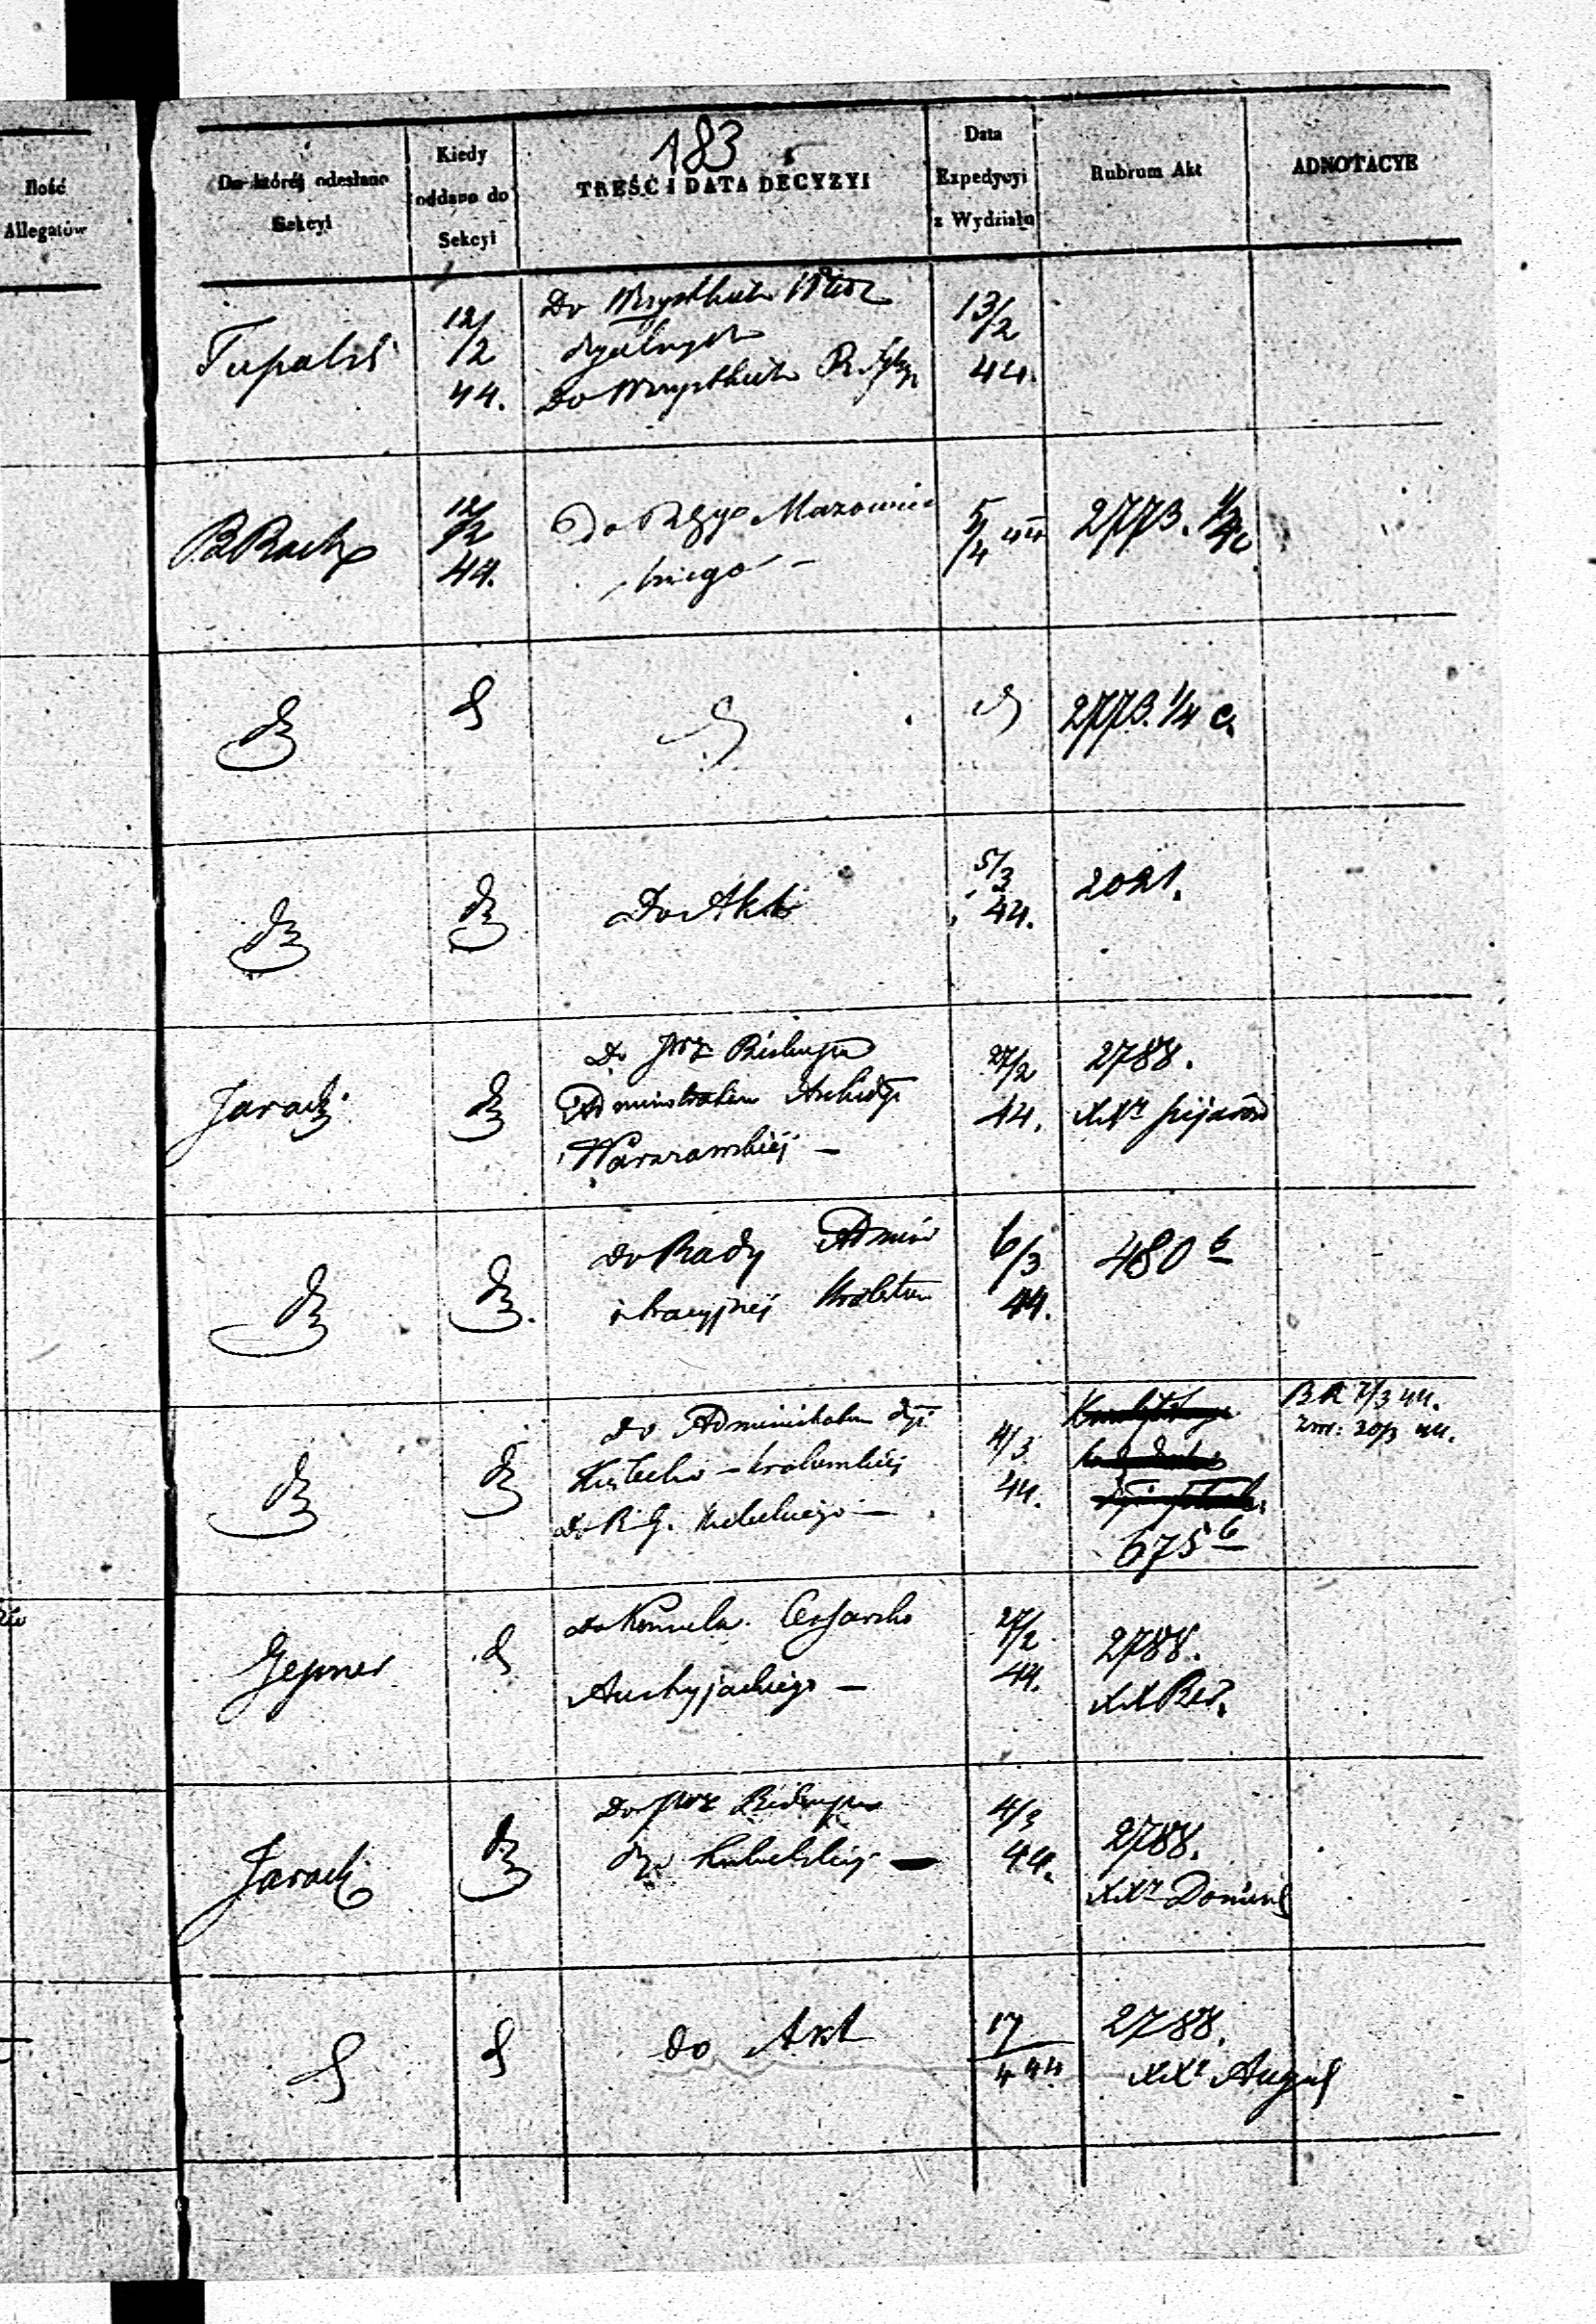 183
Ilość
Allegatów
Do której odesłano
Sekcyi
Kiedy
oddano do
Sekcyi
TREŚĆ I DATA DECYZYI
Data
Expedycyi
z Wydziału
Rubrum Akt
ADNOTACYE
12/2
44.
Do Wszystkich
Do Wszystkich
13/2
44.
12/2
44.
Do Mazowiec
kiego –
5/4 44
2773. 1/4 c
dto
dto
dto
dto
2773. 1/4 c.
dto
dto
Do Akt
5/3
44.
2021.
Jarocki
dto
Do JWX Biskupa
Administratora Archidy
Warszawskiej –
27/2
44.
2788.
XX Pijarów
dto
dto
do Rady Admini
stracyjnej Królestwa
6/3
44.
480 b
dto
dto
do Administratora dyi
Kielecko – krakowskiej
do R. G. –
4/3
44.
675 b
7/3 44.
20/3 44.
Gepner
dto
do Konsula Cesarsko
Austryjackiego –
27/2
44.
2788.
XX
Jarocki
dto
Do JWX Biskupa
dyi Lubelskiej –
4/3
44.
2788.
XX Dominik
dto
dto
do Akt
17/4 44
2788.
XX August